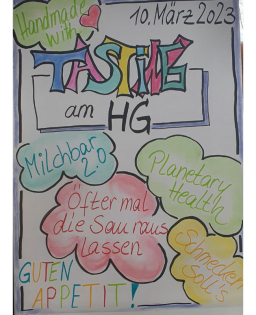 Handmade
with
10. März 2023
TASTING
am HG
Milchbar
2.0
Planetary
Health
Öfter mal
die Sau raus
lassen
Schmecken
Soll's
GUTEN
APPETIT!